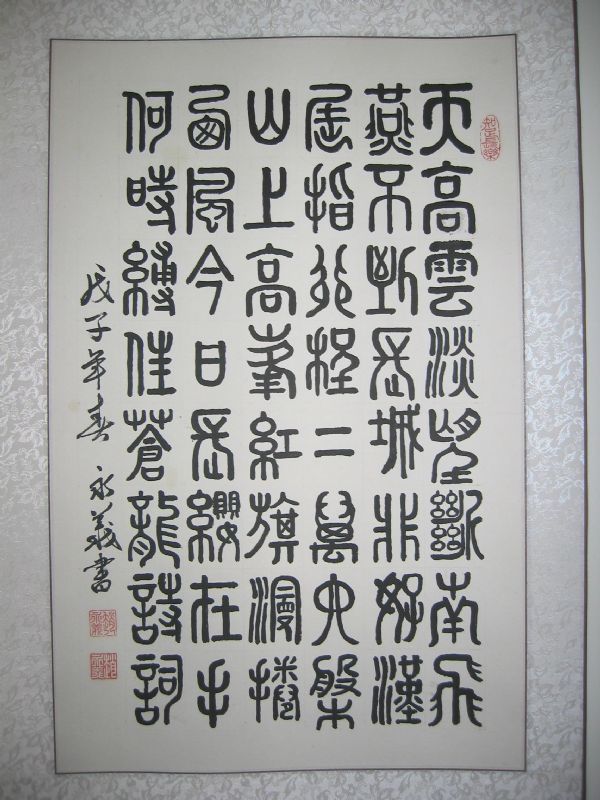 天高雲淡望斷南飛
燕不到長城非好漢
屈指行程二萬六盤
山上高峯紅旗漫捲
西風今日長纓在手
何時縛住蒼龍詩詞
戊子年春 永義書